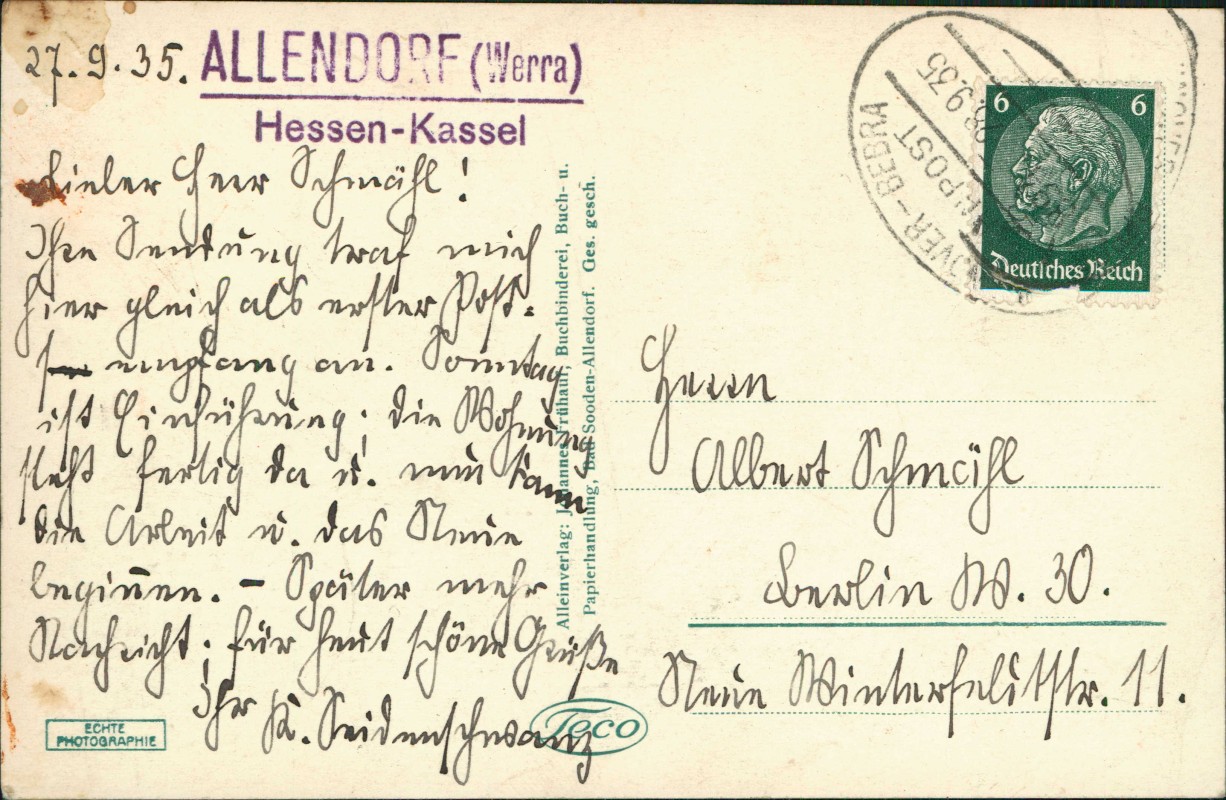 27.9.35. ALLENDORF (Werra)
Hessen-Kassel
Lieber Herr Schmähl!
Ihre Sendung traf mich
hier gleich als erster Post-
empfang an. Sonntag
ist Einführung; die Wohnung
steht fertig da u. nun kann
die Arbeit u. das Neue
beginnen. – Später mehr
Nachricht; für heut schöne Grüße
Ihr K. Seidenschwanz
ECHTE
PHOTOGRAPHIE
Teco
Alleinverlag: Johannes Frühauf, Buchbinderei, Buch- u.
Papierhandlung, Bad Sooden-Allendorf. Ges. gesch.
HANNOVER – BEBRA
BAHNPOST
28.9.35
6 6
Deutsches Reich
Herrn
Albert Schmähl
Berlin W. 30.
Neue Winterfeldtstr. 11.